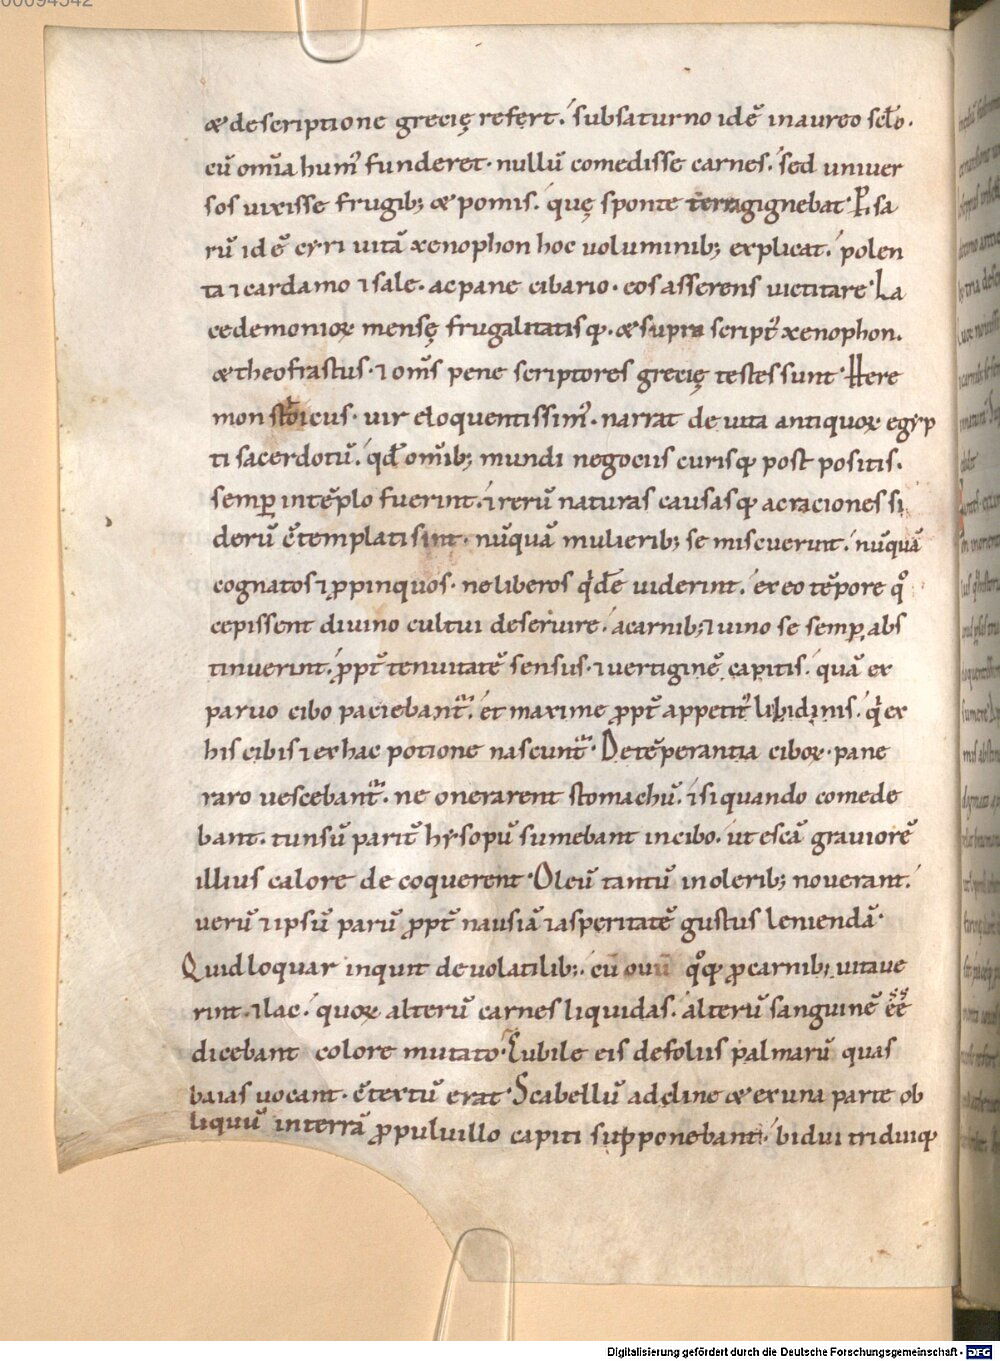 00094542
& descriptione grecię refert. subsaturno idē inaureo scło.
cū om̄ia humꝰ funderet. nullū comedisse carnes. sed univer
sos vixisse frugib; & pomis. quę sponte terra gignebat. Psa
rū idē cyri uitā xenophon hoc uoluminib; explicat. polen
ta ⁊ cardamo ⁊ sale. ac pane cibario. eos asserens uictitare. La
cedemonioꝝ mensę frugalitatisq;. & supra scriptꝰ xenophon.
& theofrastus. ⁊ om̄s pene scriptores grecię testes sunt. Here
mon stoicus. uir eloquentissimꝰ. narrat de uita antiquoꝝ egyp
ti sacerdotū. qđ om̄ib; mundi negociis curisq; post positis.
semp̄ intēplo fuerint. ⁊ rerū naturas causasq; ac raciones si
derū c̄templati sint. nūquā mulierib; se miscuerint. nūquā
cognatos ⁊ ꝓpinquos. ne liberos qͥdē uiderint. ex eo tēpore qͦ
cepissent diuino cultui deseruire. a carnib; ⁊ uino se semp̄ abs
tinuerint. ꝓpt̄ tenuitatē sensus. ⁊ vertiginē capitis. quā ex
paruo cibo paciebant᷑. et maxime ꝓpt̄ appetitꝰ libidinis. qͥ ex
his cibis ⁊ ex hac potione nascunt᷑. De tēperantia ciboꝝ. pane
raro vescebant᷑. ne onerarent stomachū. ⁊ si quando comede
bant. tunsū parit̄ hysopū sumebant in cibo. ut escā grauiorē
illius calore de coquerent. Oleū tantū in olerib; noverant.
verū ⁊ ipsū parū ꝓpt̄ nausiā ⁊ asperitatē gustus leniendā.
Quid loquar inquit de volatilib;. cū ovū qͦq; ꝓ carnib; uitaue
rint. ⁊ lac. quoꝝ alterū carnes liquidas. alterū sanguinē ēē
dicebant colore mutato. Cubile eis de foliis palmarū quas
baias uocant. c̄textū erat. Scabellū adcline & ex una parte ob
liquū in terrā ꝓ puluillo capiti supponebant. bidui triduiq;
Digitalisierung gefördert durch die Deutsche Forschungsgemeinschaft - DFG